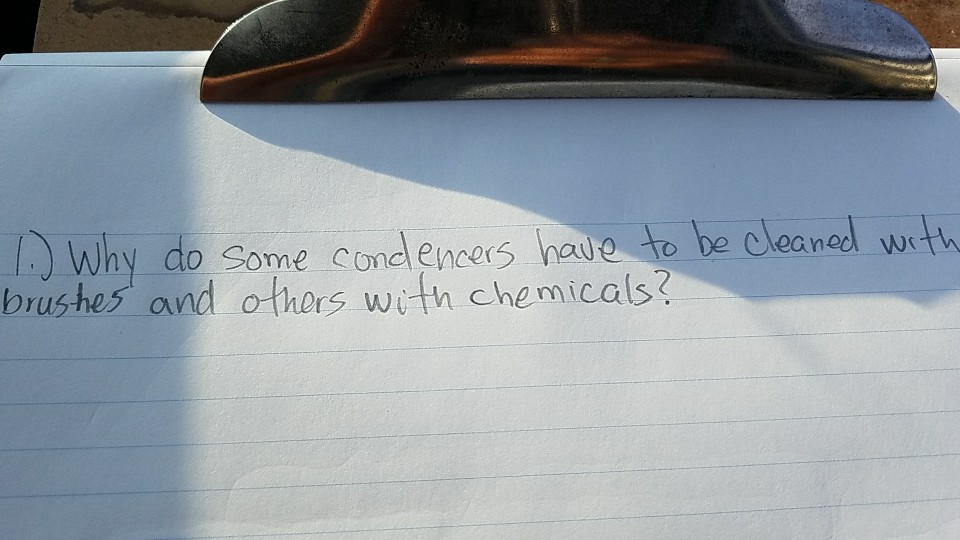 1.) Why do some condencers have to be cleaned with
brushes and others with chemicals?